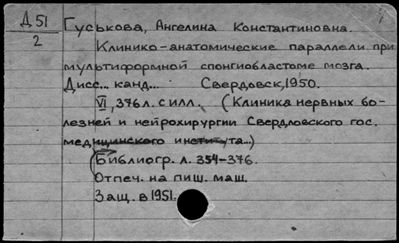 Д 51
2
Гуськова, Ангелина Константиновна.
Клинико-анатомические параллели при
мультиформной спонгиобластоме мозга.
Дисс... канд... Свердовск, 1950.
VI, 376 л. с илл. (Клиника нервных бо-
лезней и нейрохирургии Свердловского гос.
медицинского института...)
(Библиогр. л. 354-376.
Отпеч. на пиш. маш.
Защ. в 1951.